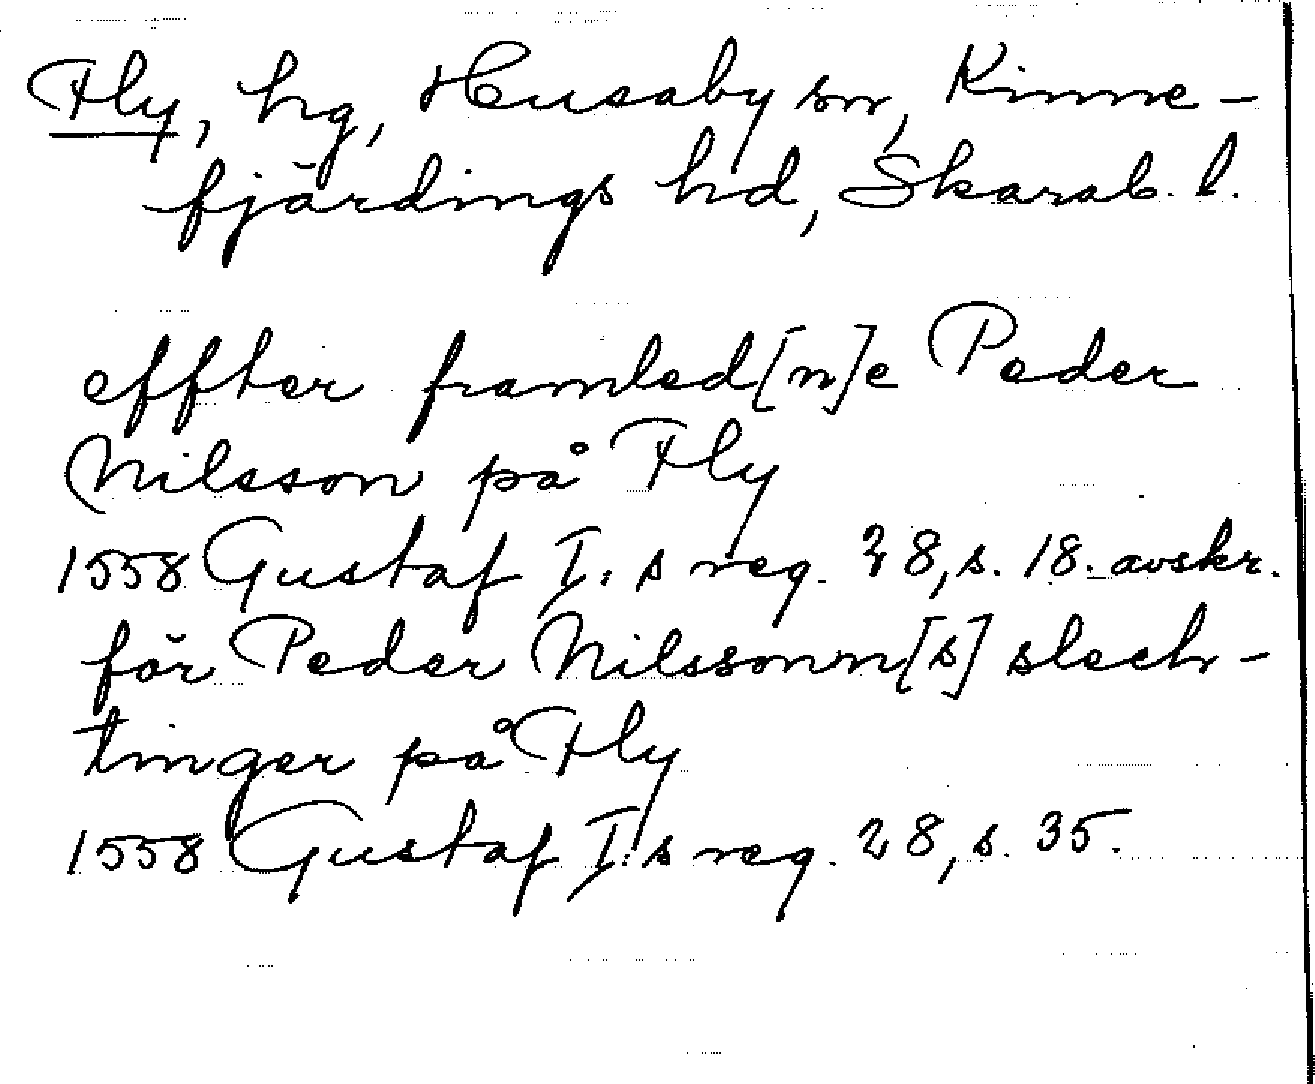 Fly, hg, Husaby sn, Kinne-
fjärdings hd, Skarab. l.
effter framled[n]e Peder
Nilsson på Fly
1558 Gustaf I:s reg. 28, s. 18. avskr.
för Peder Nilssonn[s] slech-
tinger på Fly
1558 Gustaf I:s reg. 28, s. 35.